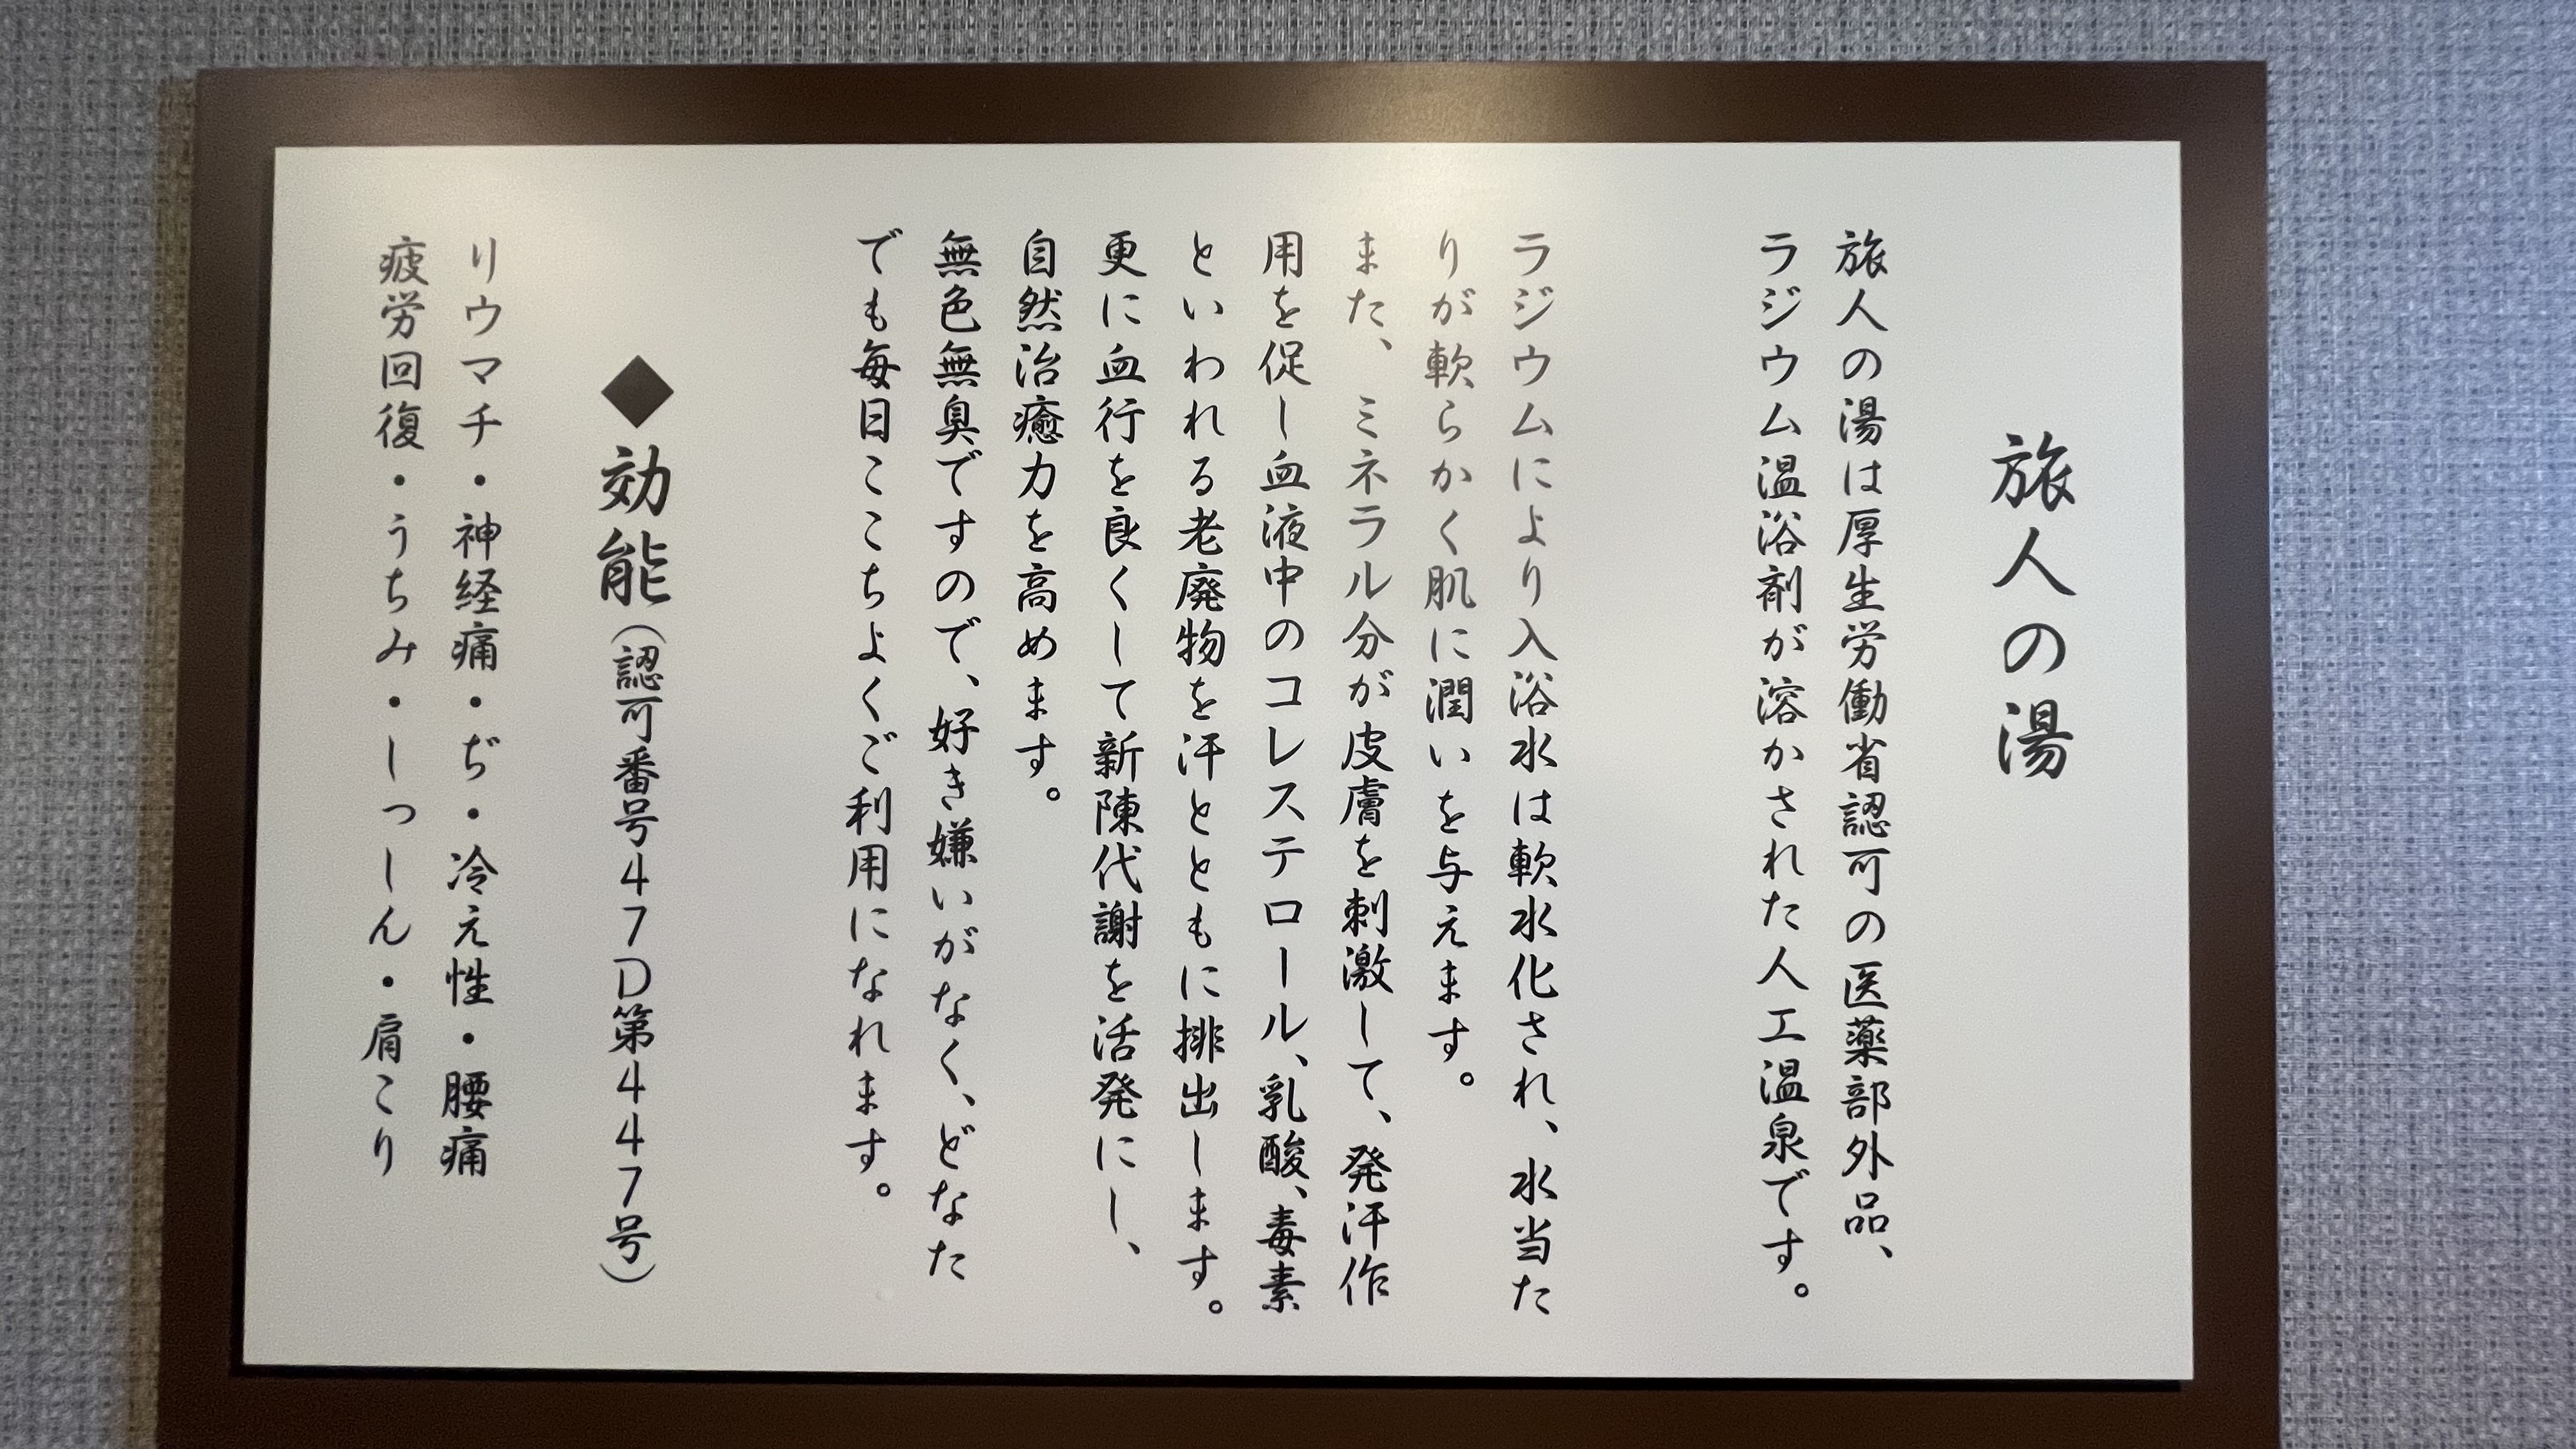 旅人の湯
旅人の湯は厚生労働省認可の医薬部外品、
ラジウム温浴剤が溶かされた人工温泉です。
ラジウムにより入浴水は軟水化され、水当た
りが軟らかく肌に潤いを与えます。
また、ミネラル分が皮膚を刺激して、発汗作
用を促し血液中のコレステロール、乳酸、毒素
といわれる老廃物を汗とともに排出します。
更に血行を良くして新陳代謝を活発にし、
自然治癒力を高めます。
無色無臭ですので、好き嫌いがなく、どなた
でも毎日ここちよくご利用になれます。
◆効能(認可番号47D第4447号)
リウマチ・神経痛・ぢ・冷え性・腰痛
疲労回復・うちみ・しっしん・肩こり